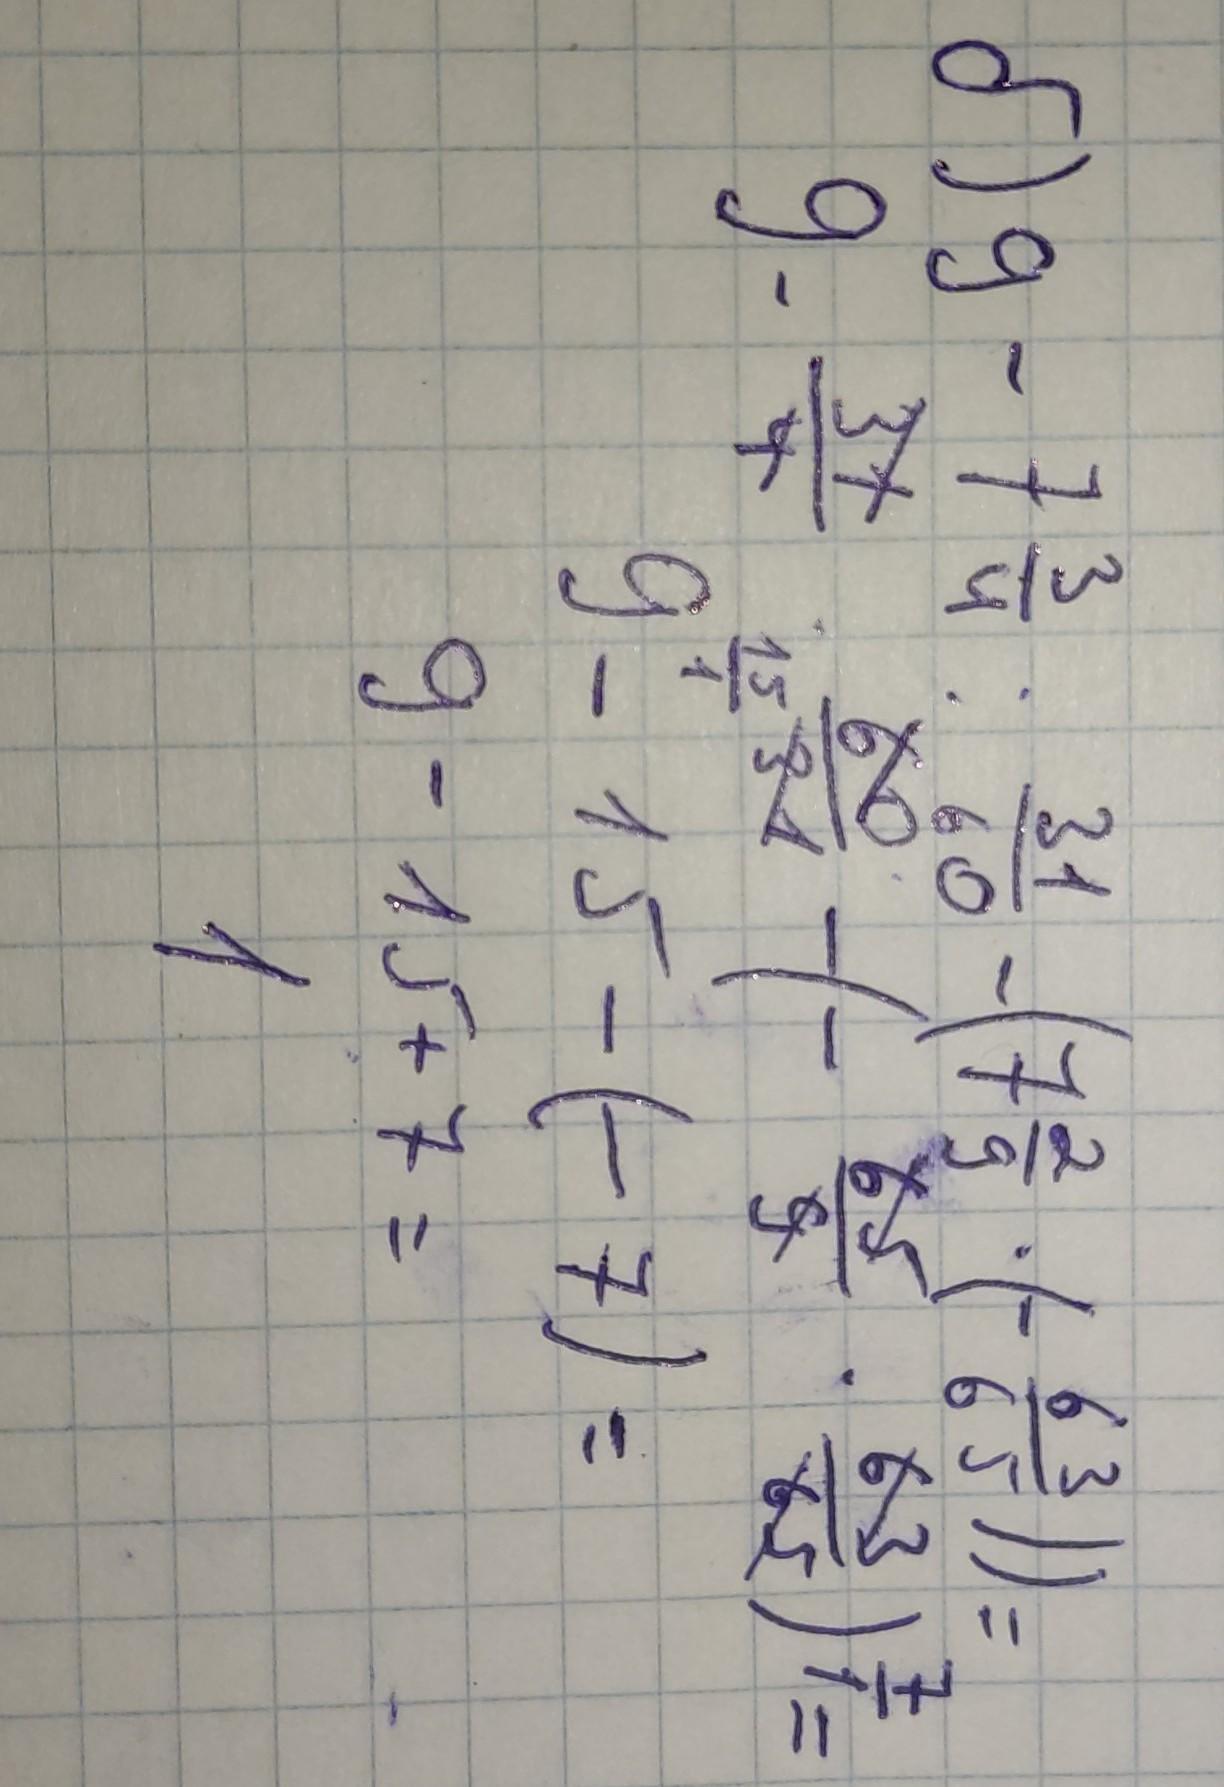 б) 9 - 7 3/4 : 31/60 - (7 2/9 · (- 63/65)) =
9 - 31/4 · 60/31 - (- 65/9 · 63/65) =
15/1 7/1
9 - 15 - (- 7) =
9 - 15 + 7 =
1